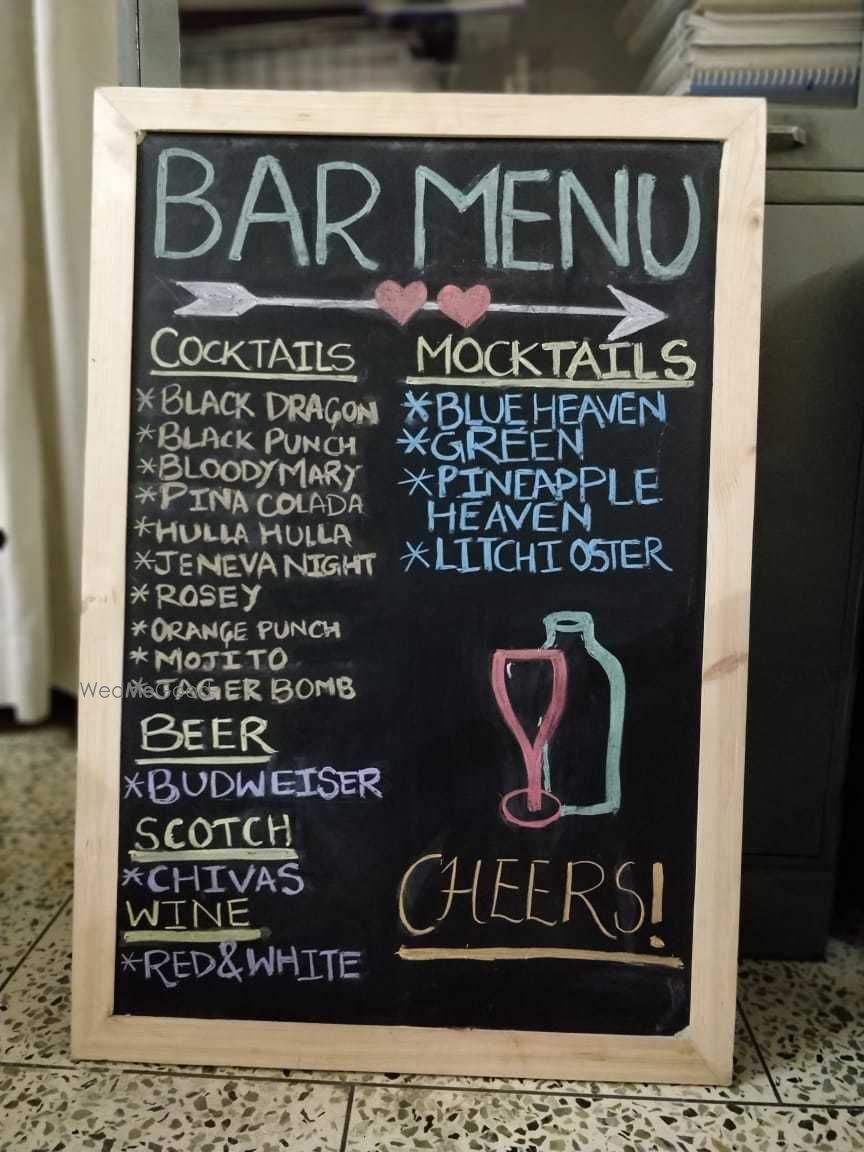 BAR MENU
COCKTAILS
*BLACK DRAGON
*BLACK PUNCH
*BLOODY MARY
*PINA COLADA
*HULLA HULLA
*JENEVA NIGHT
*ROSEY
*ORANGE PUNCH
*MOJITO
*JAGER BOMB
BEER
*BUDWEISER
SCOTCH
*CHIVAS
WINE
*RED&WHITE
MOCKTAILS
*BLUE HEAVEN
*GREEN
*PINEAPPLE
HEAVEN
*LITCHI OSTER
CHEERS!
WedMeGood